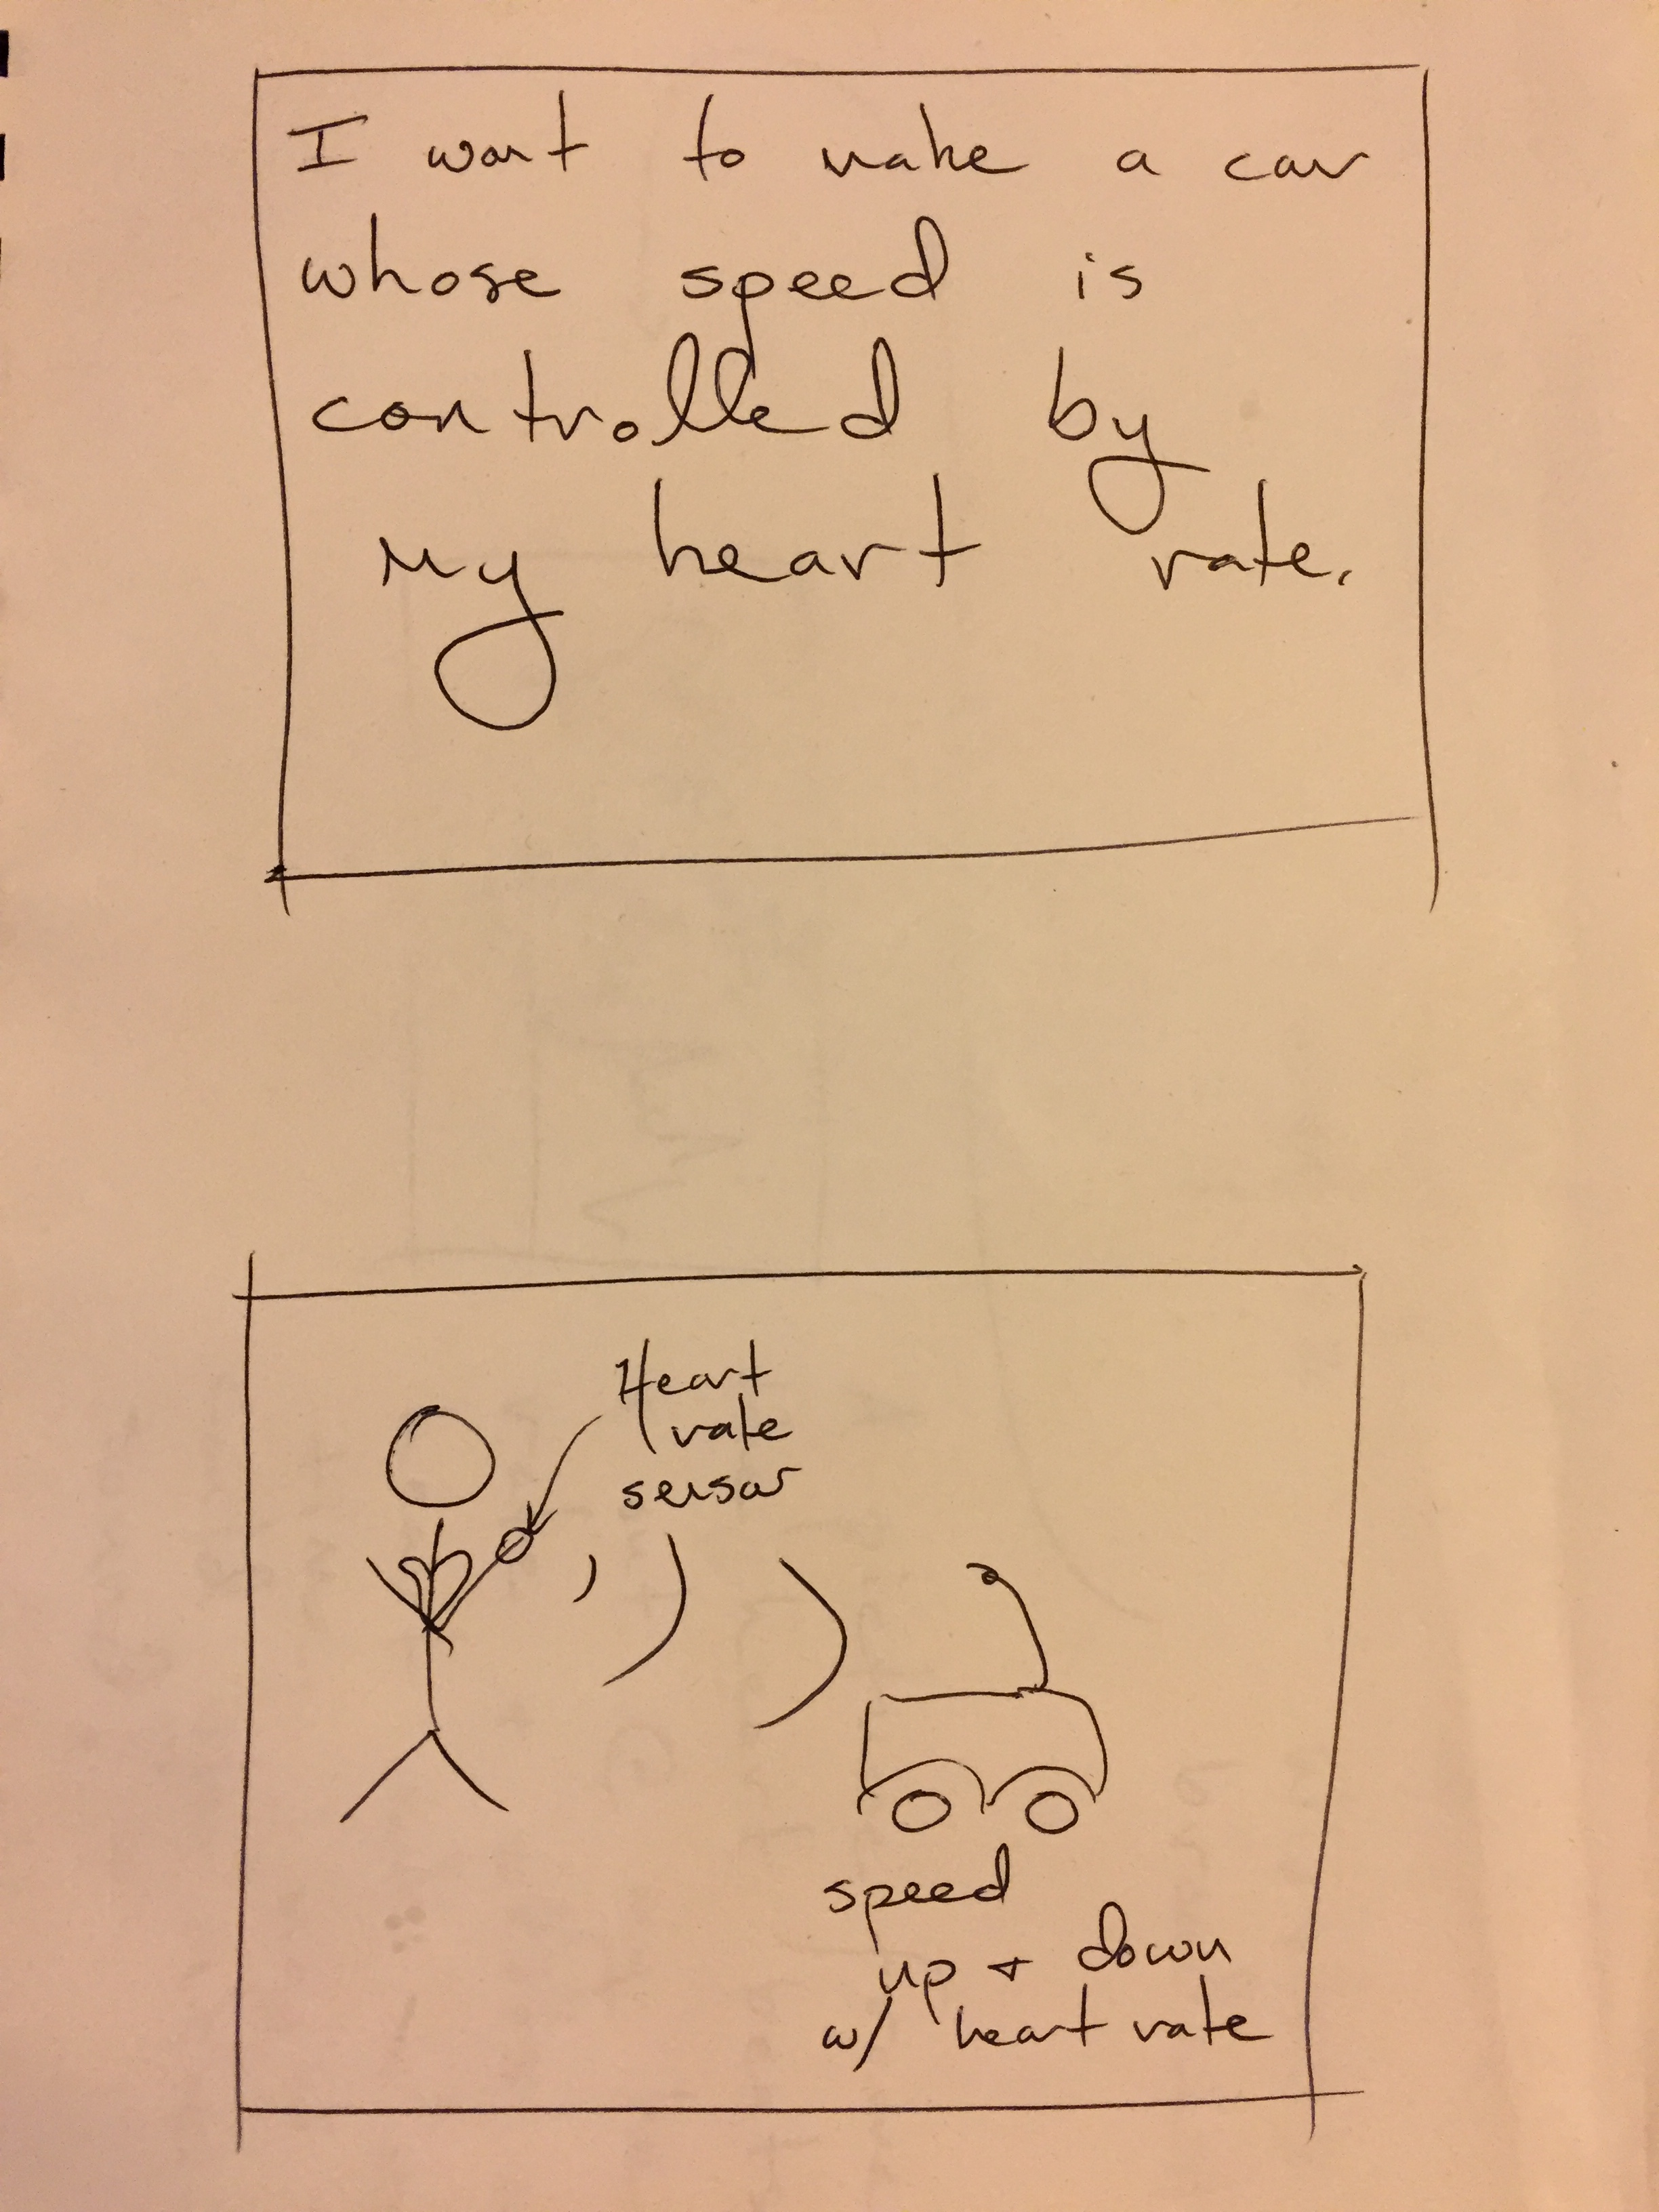 I want to make a car
whose speed is
controlled by
my heart rate.
Heart
rate
sensor
speed
up + down
w/ heart rate